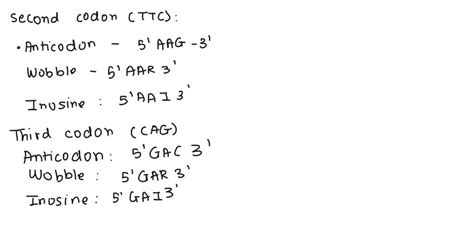 second codon (TTC):
• Anticodon - 5' AAG -3'
Wobble - 5' AAR 3'
Inosine : 5' AAI 3'
Third codon (CAG)
Anticodon: 5' GAC 3'
Wobble : 5' GAR 3'
Inosine : 5' GAI 3'